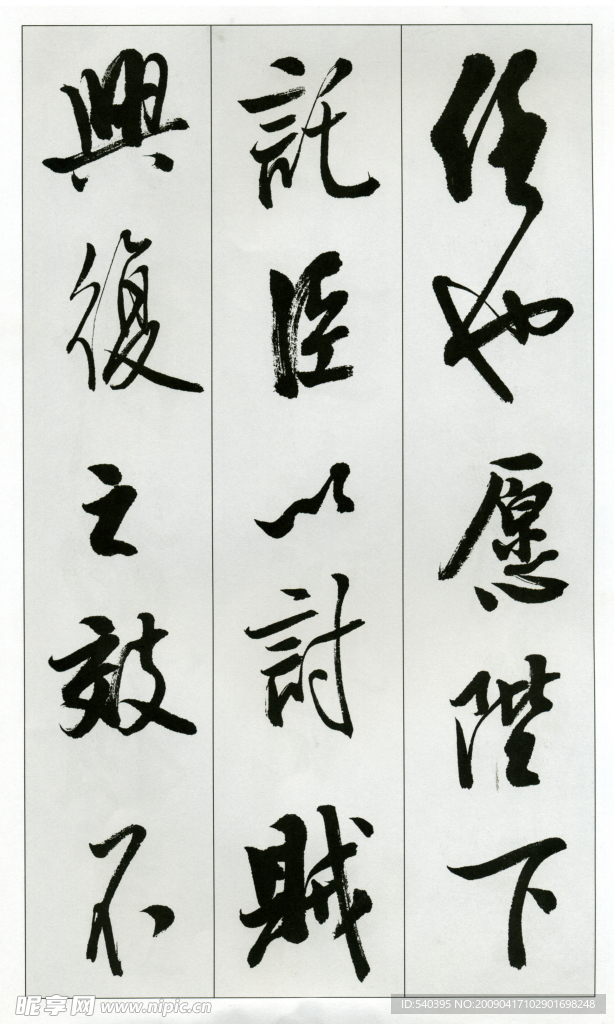 任也愿陛下
託臣以討賊
興復之效不
昵享网 www.nipic.cn
ID:540395 NO:20090417102901698248